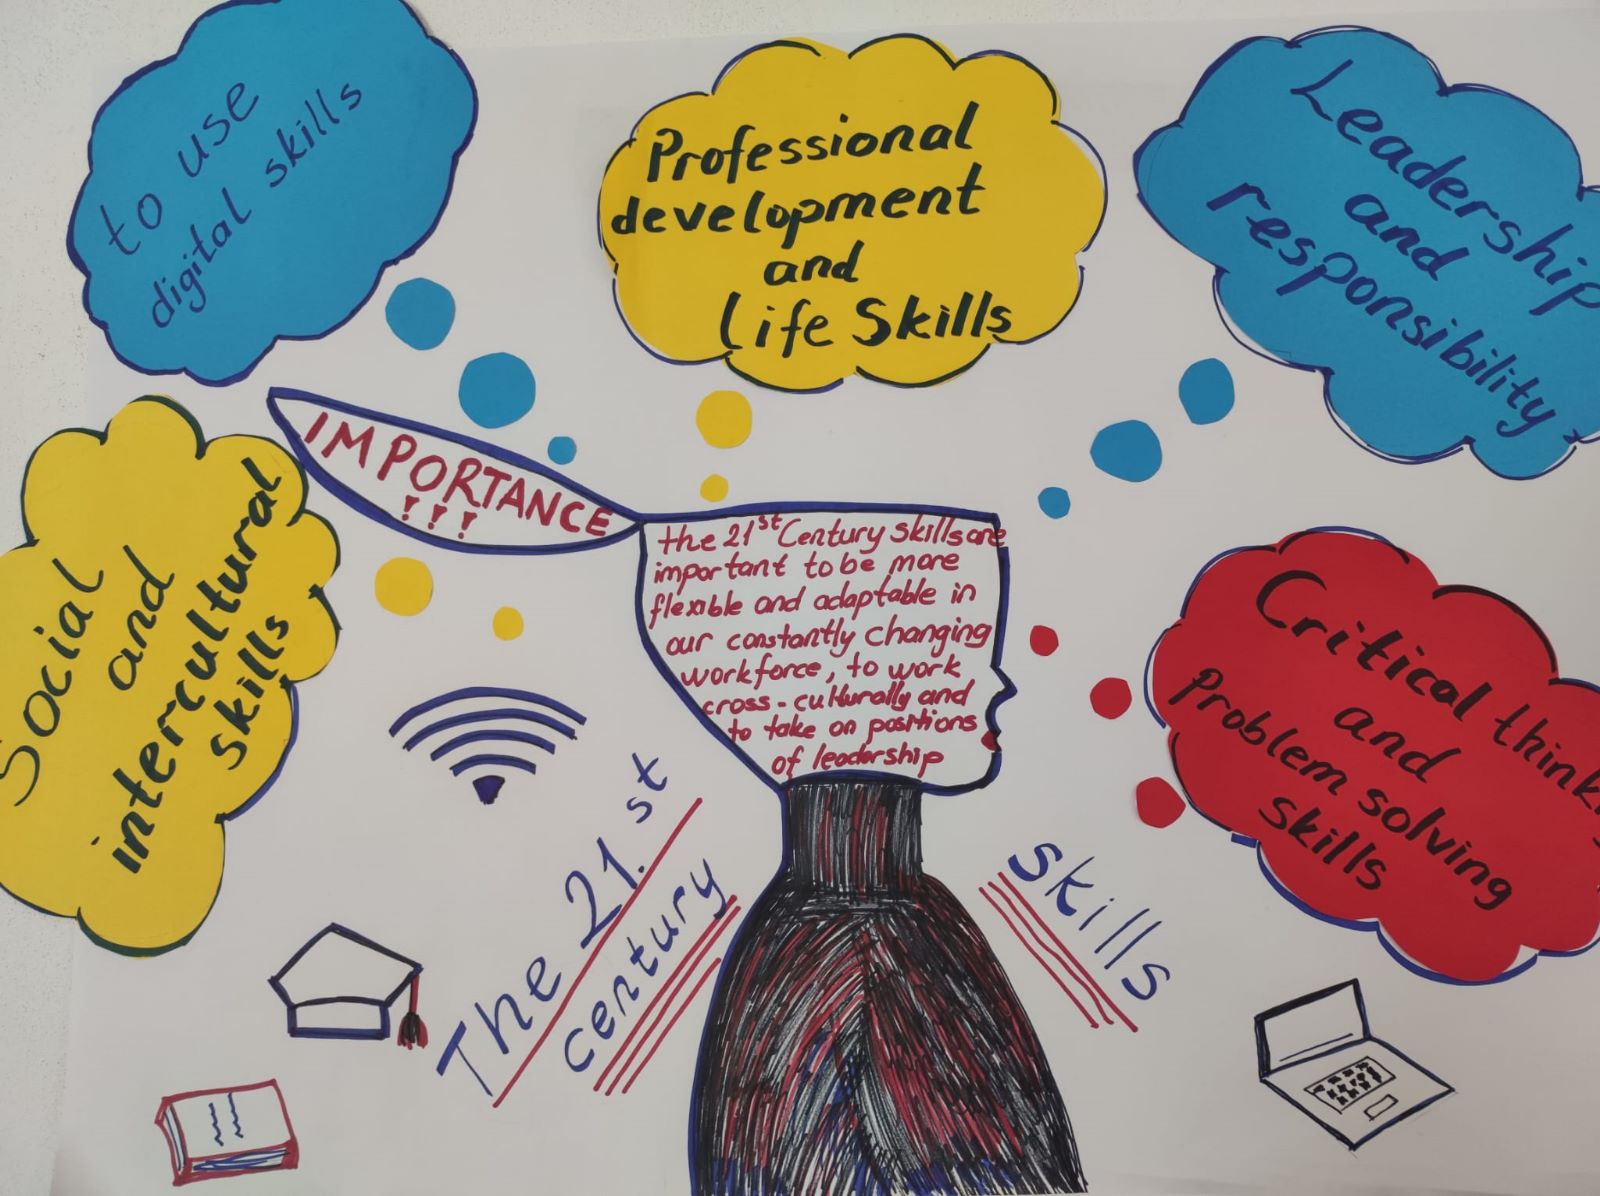 to use
digital skills
Professional
development
and
Life Skills
Leadership
and
responsibility
Social
and
intercultural
skills
IMPORTANCE
!!!
the 21st Century skills are
important to be more
flexible and adaptable in
our constantly changing
workforce, to work
cross-culturally and
to take on positions
of leadership
Critical thinking
and
Problem solving
Skills
The 21.st
century
skills